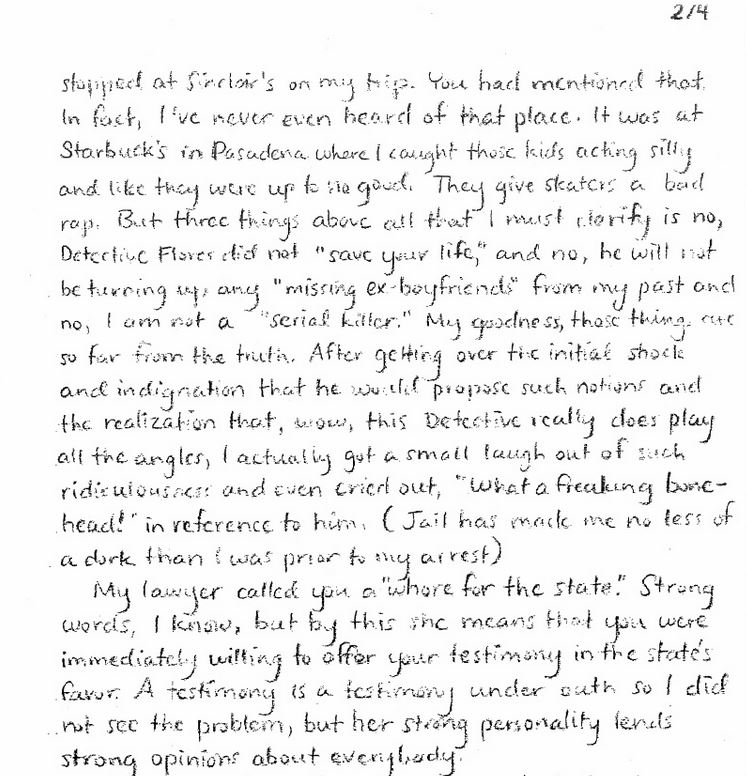 2/4
stopped at Sinclair's on my trip. You had mentioned that.
In fact, I've never even heard of that place. It was at
Starbuck's in Pasadena where I caught those kids acting silly
and like they were up to no good. They give skaters a bad
rap. But three things above all that I must clarify is no,
Detective Flores did not "save your life," and no, he will not
be turning up any "missing ex-boyfriends" from my past and
no, I am not a "serial killer." My goodness, those things are
so far from the truth. After getting over the initial shock
and indignation that he would propose such notions and
the realization that, wow, this Detective really does play
all the angles, I actually got a small laugh out of such
ridiculousness and even cried out, "What a freaking bone-
head!" in reference to him. (Jail has made me no less of
a dork than I was prior to my arrest)
My lawyer called you a "whore for the state." Strong
words, I know, but by this she means that you were
immediately willing to offer your testimony in the state's
favor. A testimony is a testimony under oath so I did
not see the problem, but her strong personality lends
strong opinions about everybody.